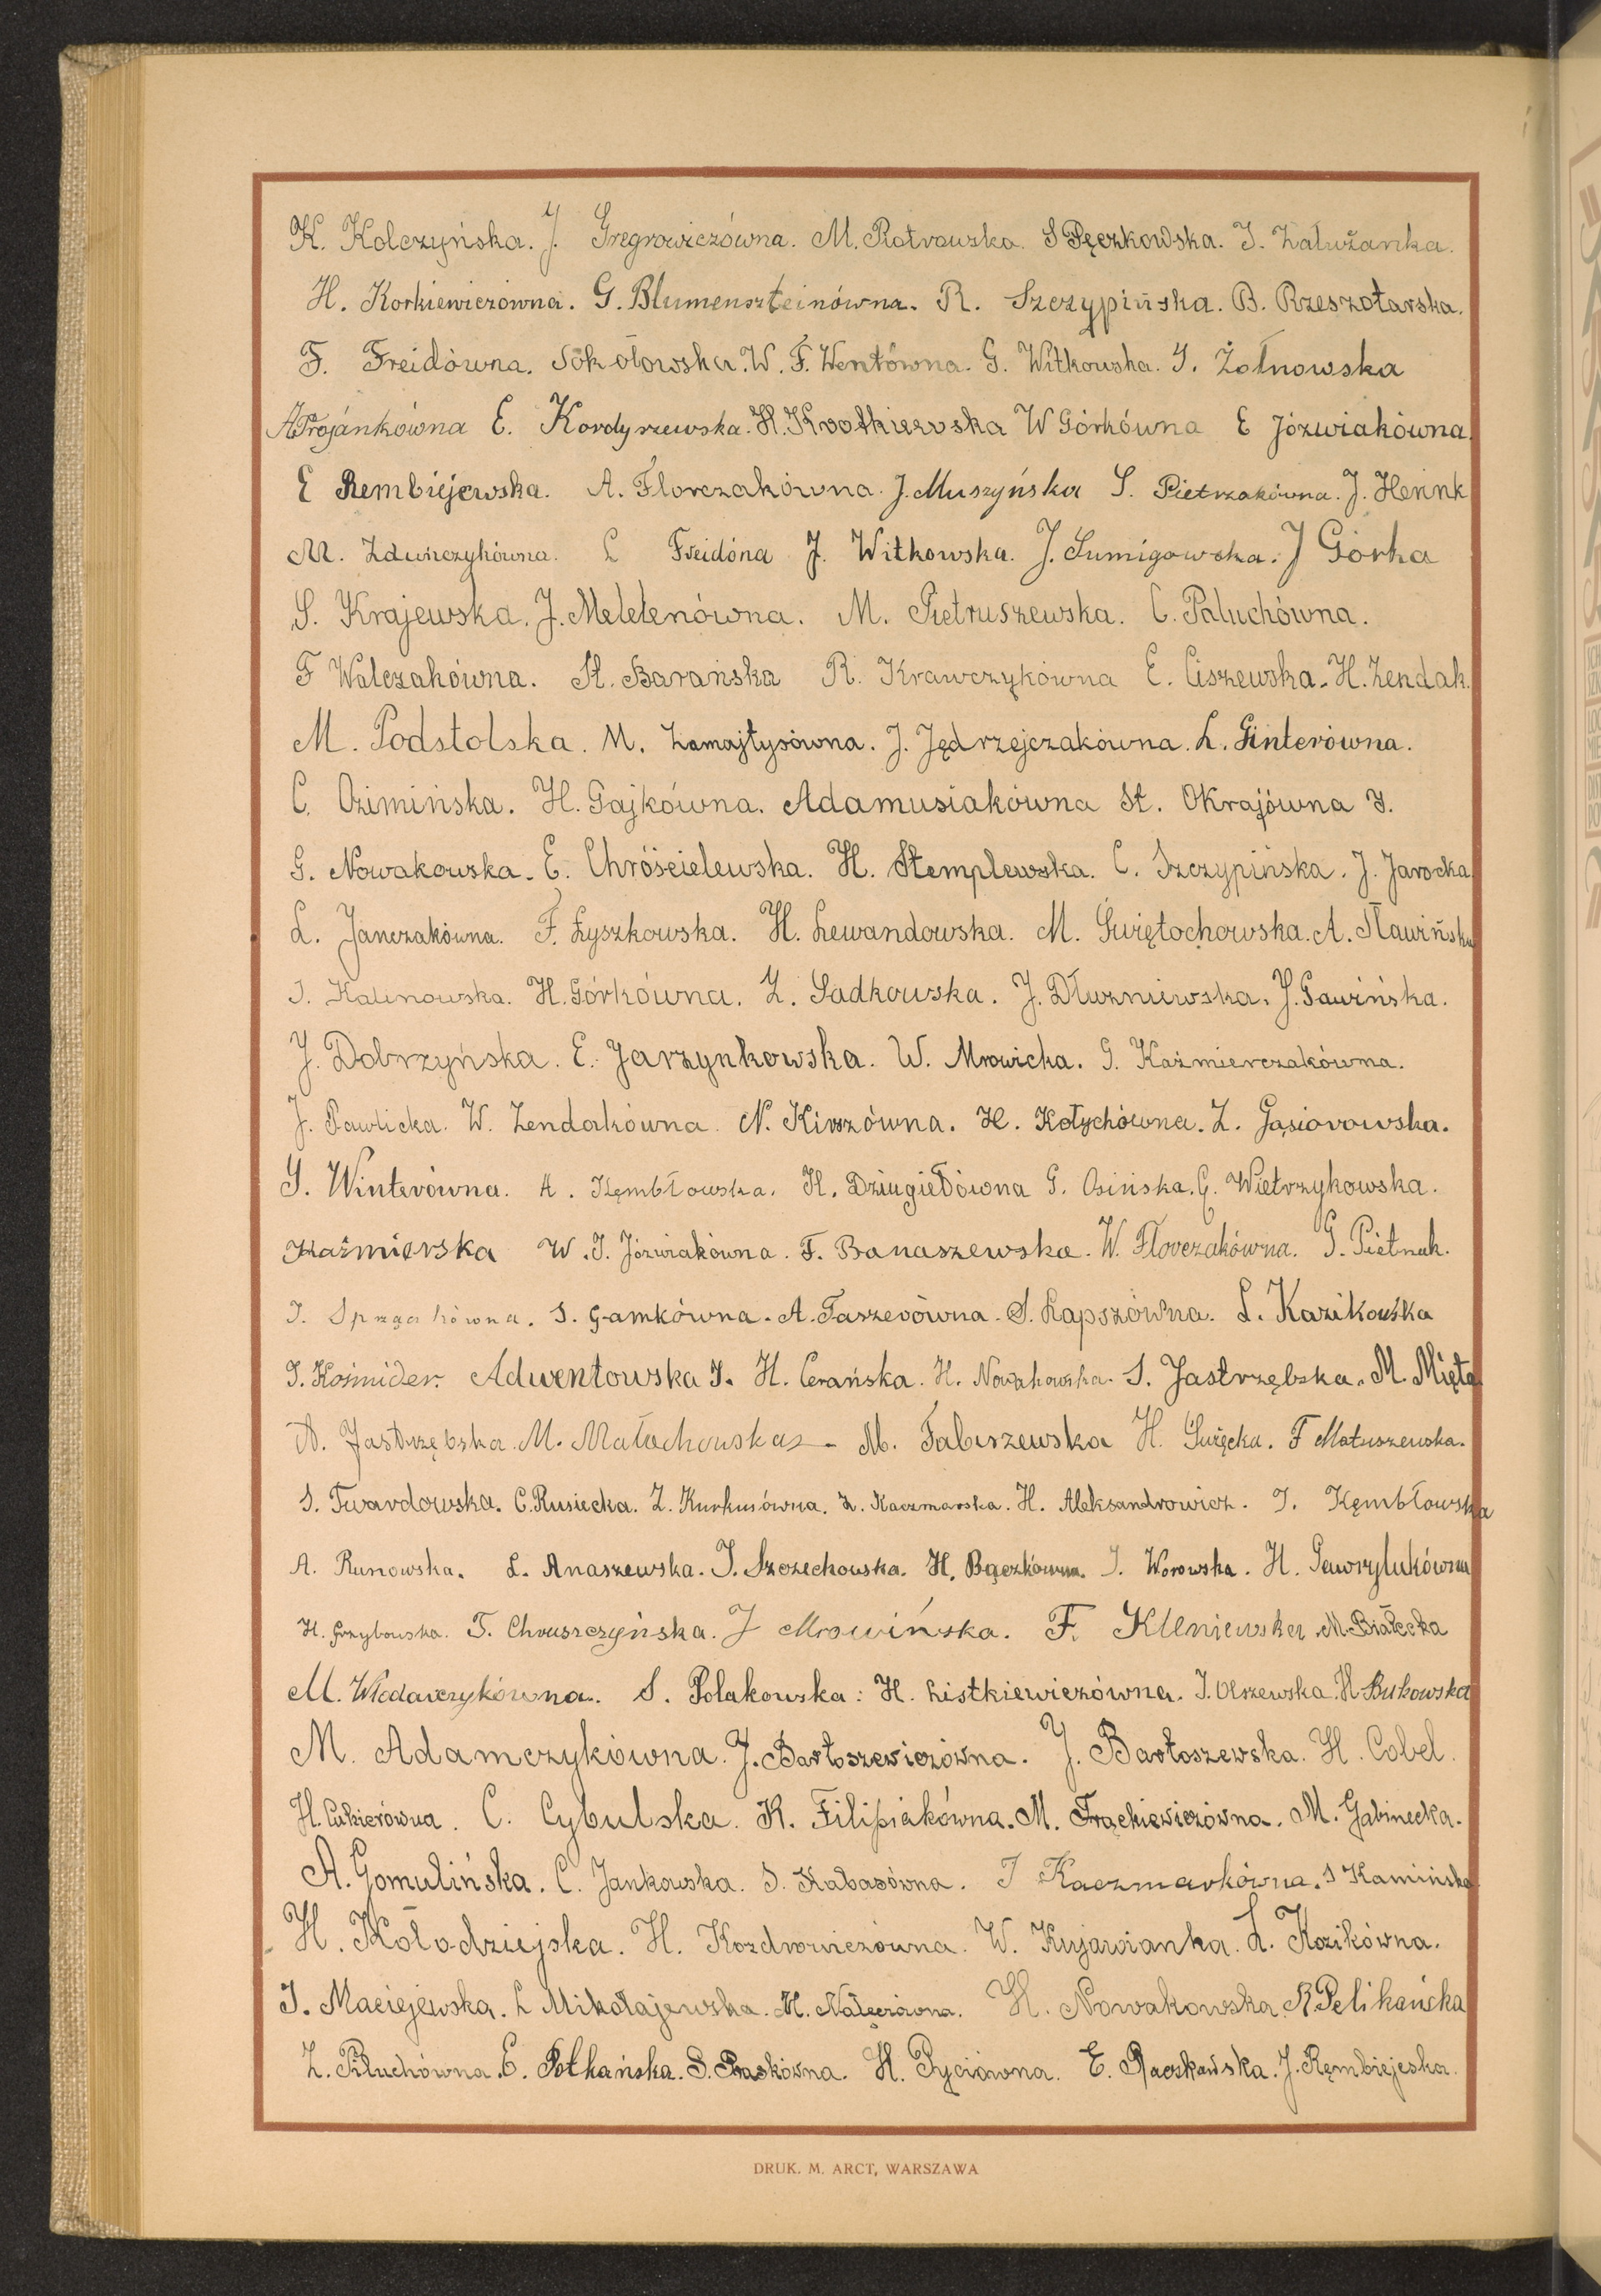 K. Kolczyńska. J. Gregrowiczówna. M. Piotrowska. S Pęczkowska. J. Załużanka.
H. Korkiewiczówna. G. Blumenszteinówna. R. Szczypińska. B. Rzeszotarska.
F. Freidówna. Sokołowska. W. F. Wentówna. G. Witkowska. J. Żołnowska
A Trojánkówna E. Kordyszewska. H. Krootkiewska W Górkówna E Józwiakówna.
E Rembiejewska. A. Florczakówna. J. Muszyńska S. Pietrzakówna. J. Hennk
M. Zduńczykówna. L Freidóna J. Witkowska. J. Sumigowska. J Górka
S. Krajewska. J. Meletenówna. M. Pietruszewska. C. Paluchówna.
F Walczakówna. St. Barańska R. Krawczykówna E. Ciszewska. H. Zendak.
M. Podstolska. M. Zamajtysówna. J. Jędrzejczakówna. L. Ginterówna.
C. Ozimińska. H. Gajkówna. Adamusiakówna St. Okrajówna J.
G. Nowakowska. E. Chróścielewska. H. Stemplewska. C. Szczypińska. J. Jarocka
L. Janczakówna. F. Łyszkowska. H. Lewandowska. M. Świętochowska. A. Sławińska
J. Kalinowska. H. Górkówna. Z. Sadkowska. J. Dłużniewska. J. Gawińska.
J. Dobrzyńska. E. Jarzynkowska. W. Mrowicka. G. Kaźmierczakówna.
J. Pawlicka. W. Zendakówna. N. Kirszówna. H. Kołychówna. Z. Gąsiorowska.
J. Winterówna. A. Kęmbłowska. H. Dziugiełówna G. Osińska. G. Wietrzykowska.
Kaźmierska W. J. Józwiakówna. F. Banaszewska. W. Florczakówna. G. Pietnak.
J. Sprzączkówna. S. Gamkówna. A. Taszerówna. S. Łapszówna. L. Kazikowska
J. Kośmider. Adwentowska J. H. Cerańska. H. Nowakowska. S. Jastrzębska. M. Mięta
A. Jastrzębska. M. Małachowska. M. Fabiszewska H. Swięcka. F Matuszewska.
S. Twardowska. C. Rusiecka. Z. Kurkusówna. Z. Kaczmarska. H. Aleksandrowicz. J. Kęmbłowska
A. Runowska. L. Anaszewska. J. Szczechowska. H. Bączkówna. J. Worowska. H. Gawrylukówna
H. Grzybowska. T. Chruszczyńska. J Mrowińska. F. Kleniewska. M. Białecka
M. Włodarczykówna. S. Polakowska: H. Listkiewiczówna. J. Olszewska. H Bukowska
M. Adamczykówna. J. Bartoszewiczówna. J. Bartoszewska. H. Cobel.
H. Cukierówna. C. Cybulska. K. Filipiakówna. M. Frąckiewiczówna. M. Gabinecka.
A. Gomulińska. C. Jankowska. S. Kabasówna. J Kaczmarkówna. S Kamińska
H. Kołodziejska. H. Kozdrowiczówna. W. Kujawianka. L. Kozikówna.
J. Maciejewska. L Mikołajewska. M. Nalęczówna. H. Nowakowska. R. Pelikańcka
Z. Piłuchówna. E. Połkańska. S. Praskówna. H. Pyciówna. E. Raczkawska. J. Rembiejeska.
DRUK. M. ARCT, WARSZAWA